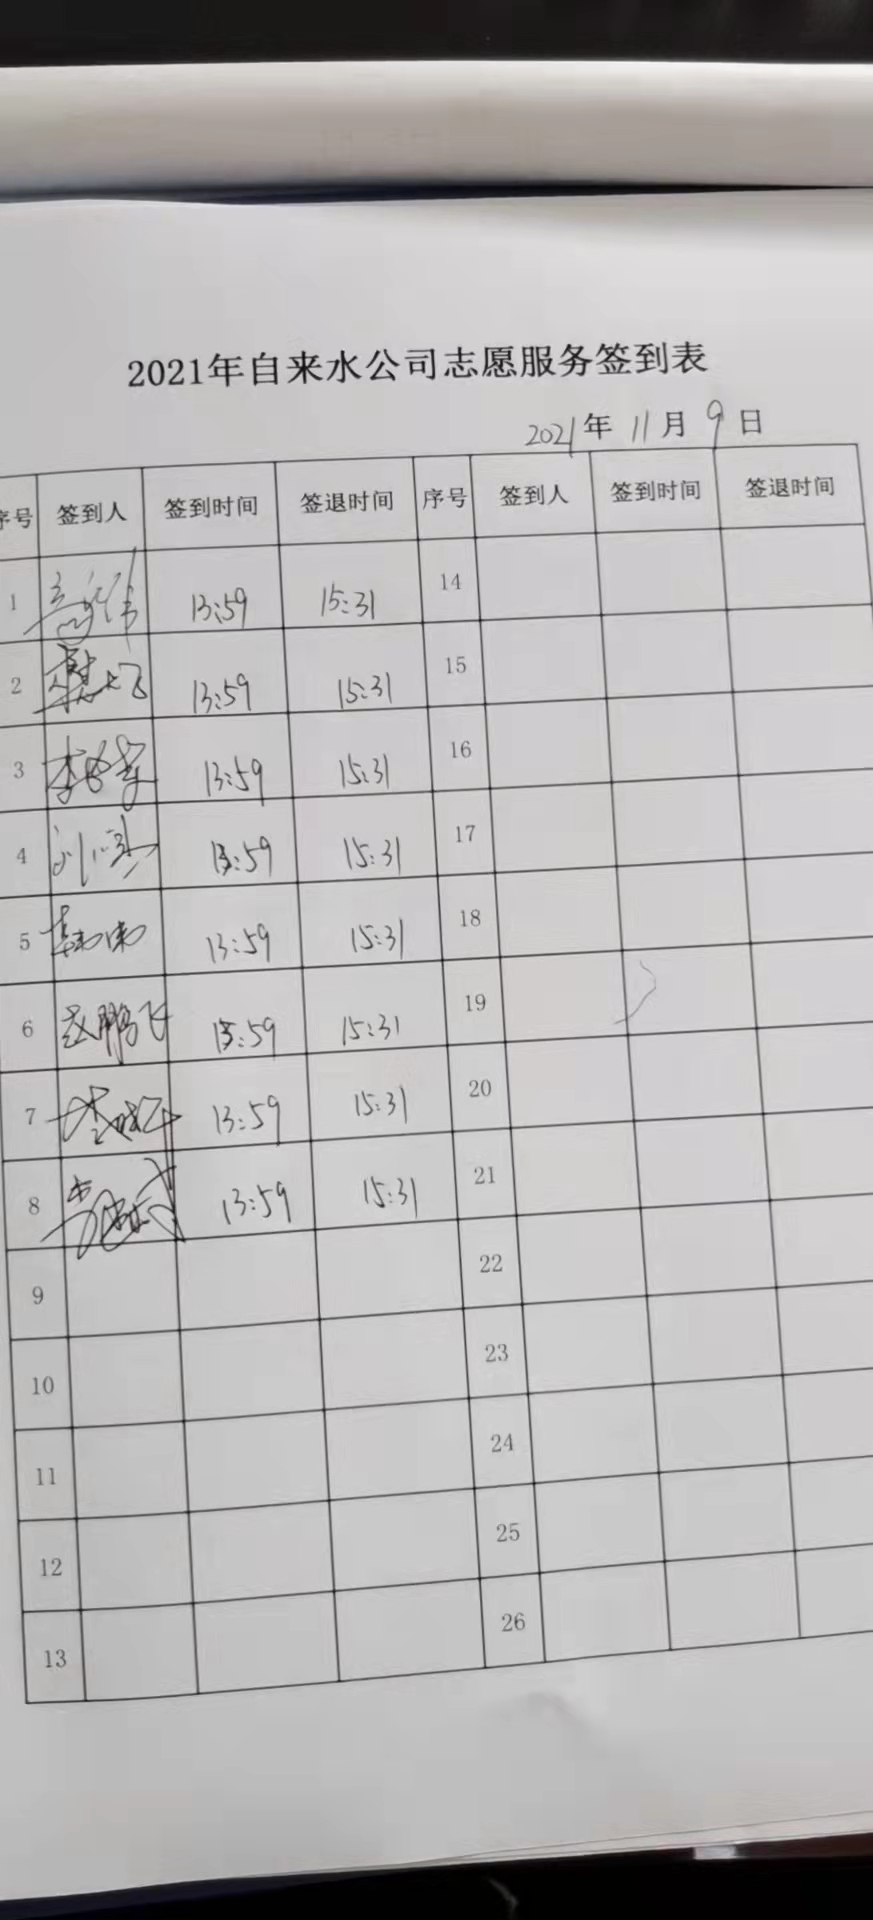 2021年自来水公司志愿服务签到表
2021年 11月 9日
序号 签到人 签到时间 签退时间 序号 签到人 签到时间 签退时间
1 13:59 15:31 14
2 13:59 15:31 15
3 李 13:59 15:31 16
4 刘 13:59 15:31 17
5 韩 13:59 15:31 18
6 赵鹏飞 13:59 15:31 19
7 李 13:59 15:31 20
8 13:59 15:31 21
9 22
10 23
11 24
12 25
13 26